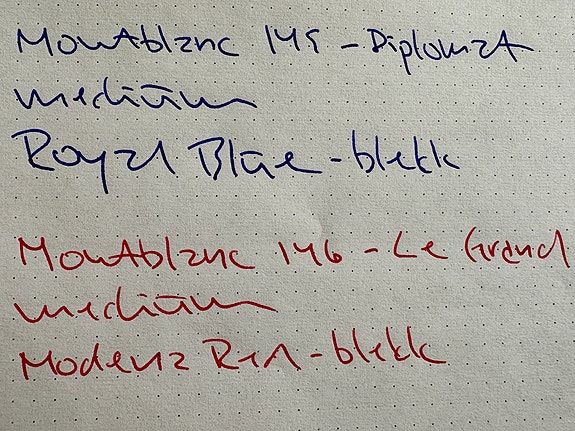 Montblanc 149 - Diplomat
medium
Royal Blue - blekk
Montblanc 146 - Le Grand
medium
Modena Red - blekk